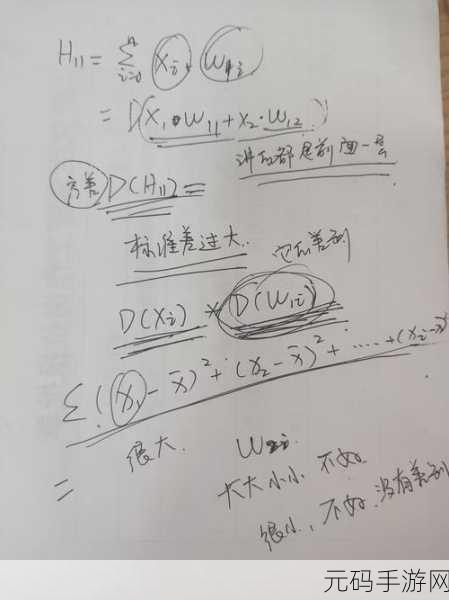 H₁₁ = Σⁿᵢ₌₀ Xᵢ · W₁ᵢ
= D(X₁·W₁₁+X₂·W₁₂)
都是前面一层
方差 D(H₁₁) =
标准差过大.
D(Xᵢ) * D(W₁ᵢ)
Σ(x₁-x̄)²+(x₂-x̄)²+……+(xᵢ-x̄)²
很大. W
= 大大小小 不好.
很小, 不好.没有差别
元码手游网